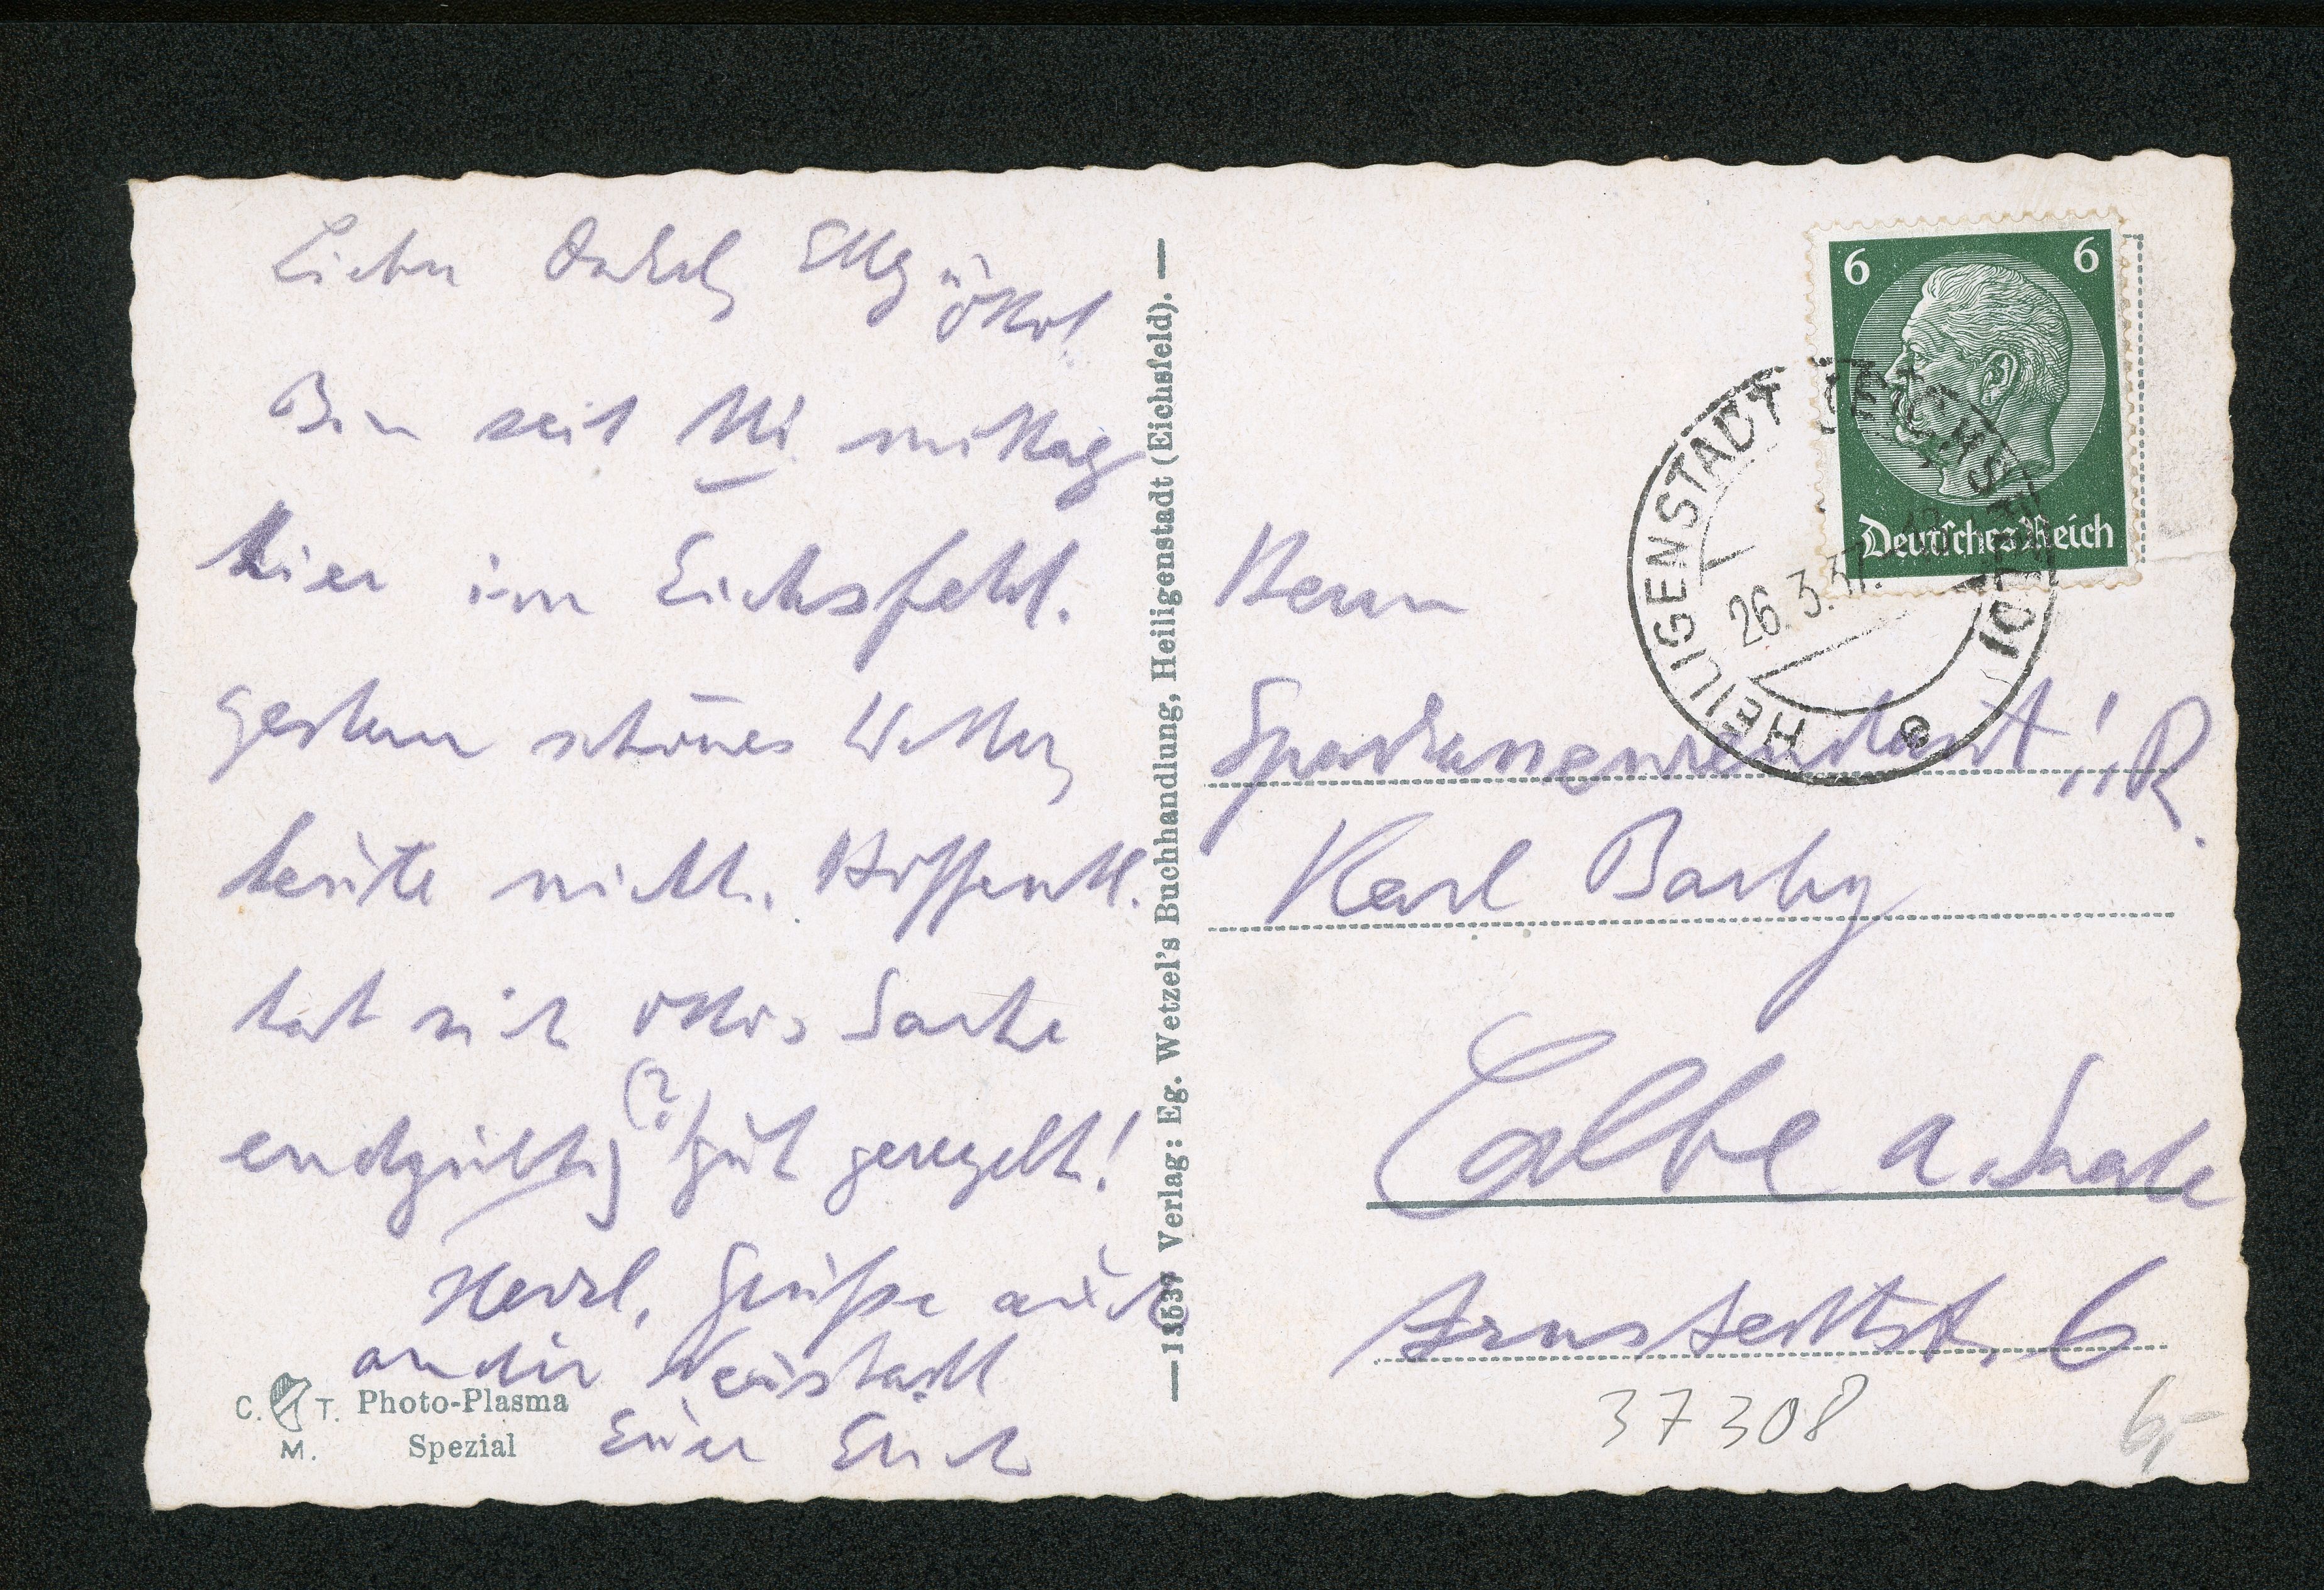 Lieber Onkel, Elly u.
Otto!
Bin seit Mi. mittag
hier im Eichsfeld.
Gestern schönes Wetter,
heute nicht. Hoffentl.
hat sich Ottos Sache
endgültig (?) gut geregelt!
Herzl. Grüße auch
an die Neustadt
Euer Erich
C. T. M. Photo-Plasma
Spezial
—13537 Verlag: Eg. Wetzel's Buchhandlung, Heiligenstadt (Eichsfeld).—
6 6
Deutsches Reich
HEILIGENSTADT (EICHSFELD)
26.3.37.
e
Herrn
Sparkassenrendant i. R.
Karl Barby
Calbe a. Saale
Arnstedtstr. 6
37308
6,-